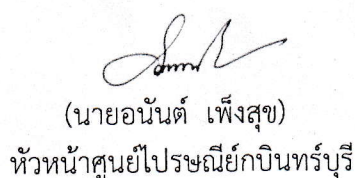 (นายอนันต์ เพ็งสุข)
หัวหน้าศูนย์ไปรษณีย์กบินทร์บุรี